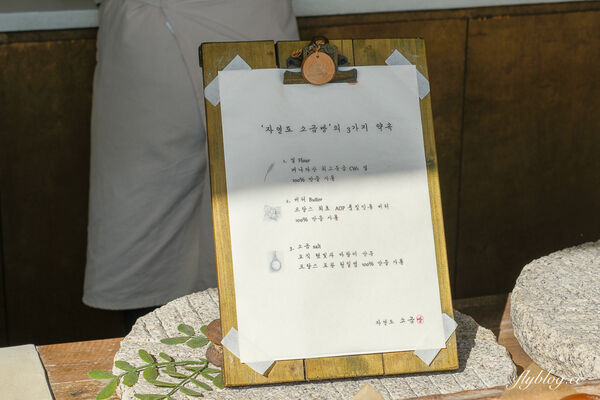 '자연도 소금빵'의 3가지 약속
1. 밀 Flour
캐나다산 최고등급 CW1 밀
100% 만을 사용
2. 버터 Butter
프랑스 최초 AOP 품질인증 버터
100% 만을 사용
3. 소금 salt
오직 햇빛과 바람이 만든
프랑스 토판 천일염 100% 만을 사용
자연도 소금빵
flyblog.cc